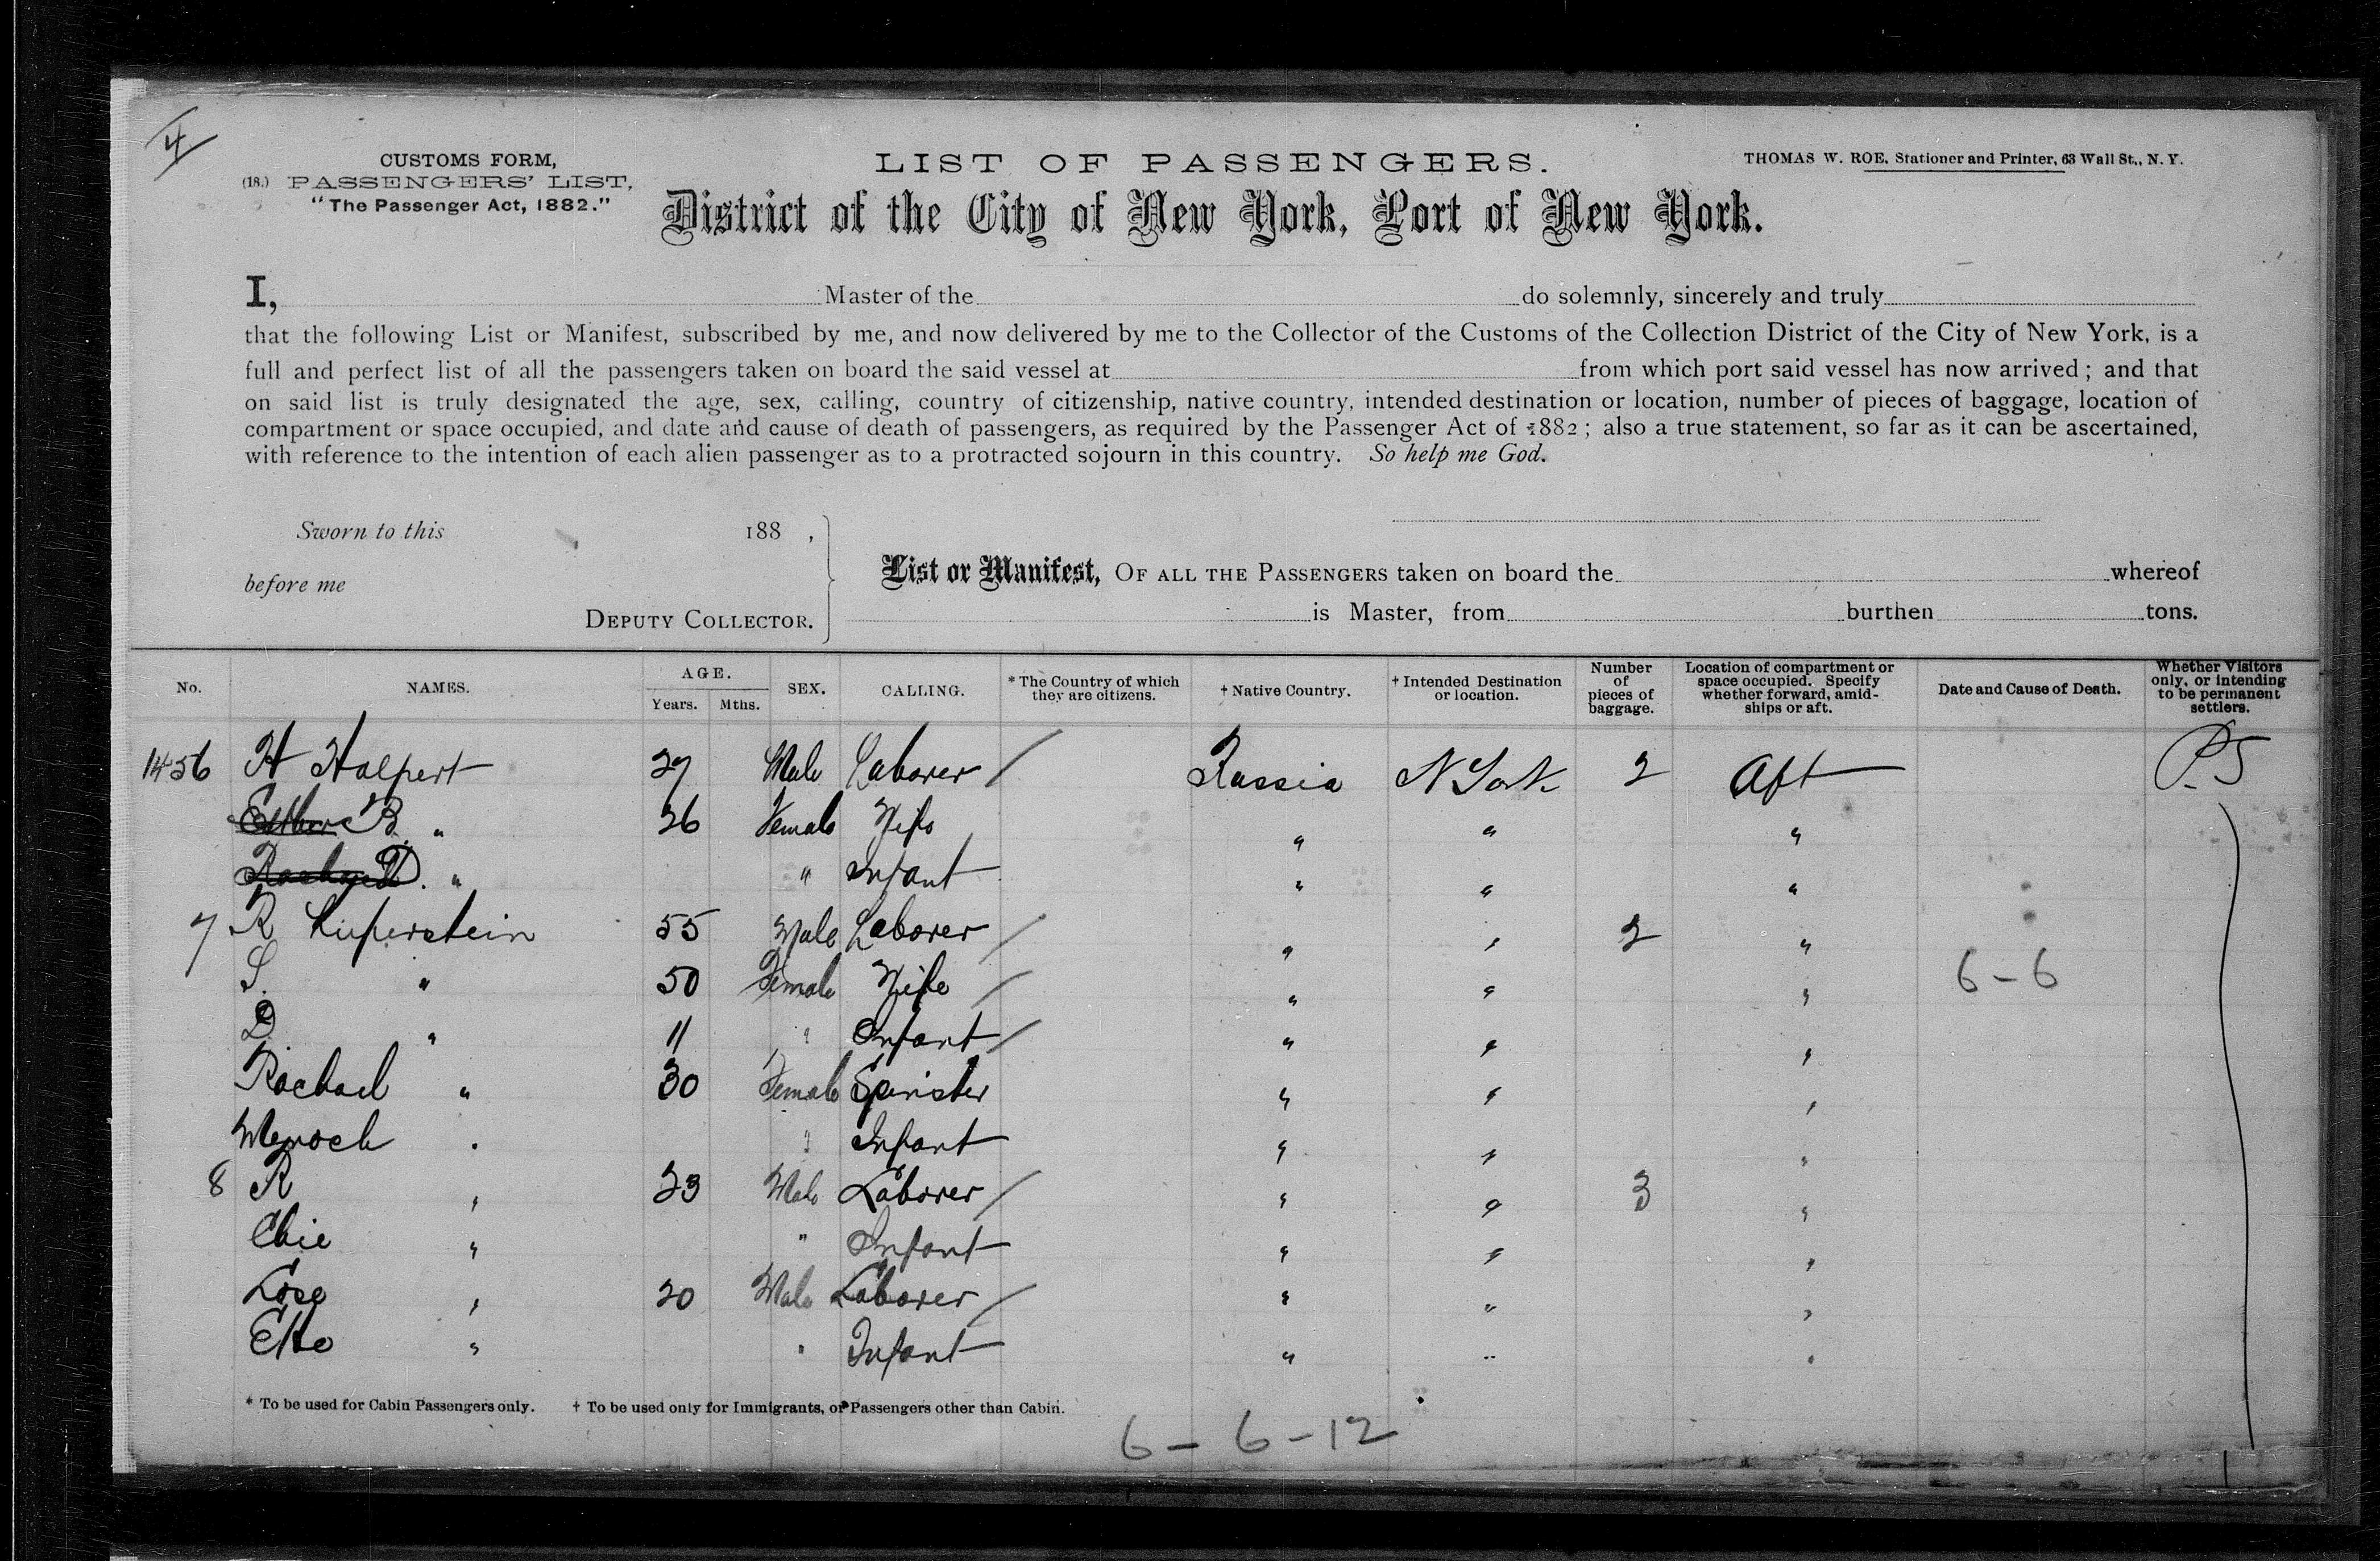 4
CUSTOMS FORM,
(18.) PASSENGERS' LIST,
"The Passenger Act, 1882."
LIST OF PASSENGERS.
THOMAS W. ROE, Stationer and Printer, 63 Wall St., N. Y.
District of the City of New York, Port of New York.
I, Master of the do solemnly, sincerely and truly
that the following List or Manifest, subscribed by me, and now delivered by me to the Collector of the Customs of the Collection District of the City of New York, is a
full and perfect list of all the passengers taken on board the said vessel at from which port said vessel has now arrived; and that
on said list is truly designated the age, sex, calling, country of citizenship, native country, intended destination or location, number of pieces of baggage, location of
compartment or space occupied, and date and cause of death of passengers, as required by the Passenger Act of 1882; also a true statement, so far as it can be ascertained,
with reference to the intention of each alien passenger as to a protracted sojourn in this country. So help me God.
Sworn to this 188 ,
before me
DEPUTY COLLECTOR.
List or Manifest, OF ALL THE PASSENGERS taken on board the whereof
is Master, from burthen tons.
No. NAMES. AGE. Years. Mths. SEX. CALLING. * The Country of which they are citizens. † Native Country. † Intended Destination or location. Number of pieces of baggage. Location of compartment or space occupied. Specify whether forward, amidships or aft. Date and Cause of Death. Whether Visitors only, or intending to be permanent settlers.
1456 H Halpert 27 Male Laborer / Russia N York 2 Aft P.S
B. " 26 Female Wife " " "
" " Infant " " "
7 R Kuperstein 55 Male Laborer / " " 2 "
S. " 50 Female Wife / " " " 6-6
D " 11 " Infant / " " "
Rachael " 30 Female Spinster " " "
Menoch " " Infant " " "
8 R " 23 Male Laborer / " " 3 "
Chie " " Infant " " "
" 20 Male Laborer / " " "
" " Infant " " "
* To be used for Cabin Passengers only. † To be used only for Immigrants, or Passengers other than Cabin.
6- 6-12